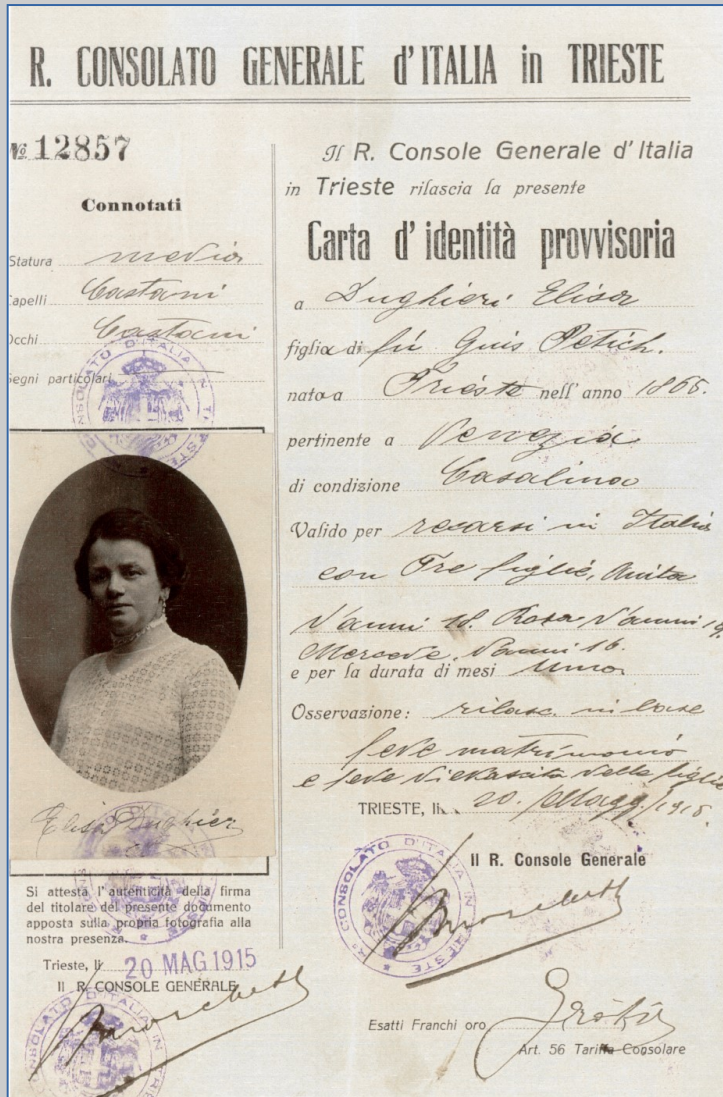 R. CONSOLATO GENERALE d'ITALIA in TRIESTE
№ 12857
Connotati
Statura media
Capelli Castani
Occhi Castani
Segni particolari
Elisa Dughieri
Si attesta l'autenticità della firma
del titolare del presente documento
apposta sulla propria fotografia alla
nostra presenza.
Trieste, li 20 MAG 1915
Il R. CONSOLE GENERALE
Il R. Console Generale d'Italia
in Trieste rilascia la presente
Carta d'identità provvisoria
a Dughieri Elisa
figlia di fù Petich.
nata a Trieste nell'anno 1865.
pertinente a Venezia
di condizione Casalina
Valido per recarsi in Italia
con Tre figlie, Anita
d'anni 18. Rosa, d'anni
Mercede, d'anni 16.
e per la durata di mesi uno.
Osservazione: rilasc. in base
fede matrimonio
e fede di nascita delle figlie
TRIESTE, li 20. Magg. 1915.
Il R. Console Generale
R.º CONSOLATO D'ITALIA IN TRIESTE
Esatti Franchi oro Gratis
Art. 56 Tariffa Consolare